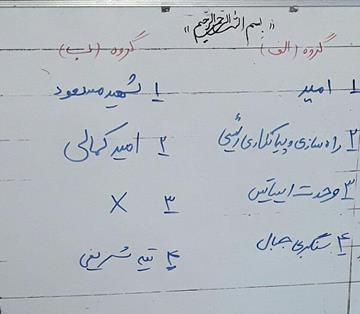 «بسم الله الرحمن الرحیم»
گروه (الف) گروه (ب)
۱ امیر ۱ شهید مسعود
۲ راه سازی و پیمانکاری رئیسی ۲ امیر کمالی
۳ وحدت ایساتیس ۳ X
۴ سنگبری جبال ۴ تیه شریفی